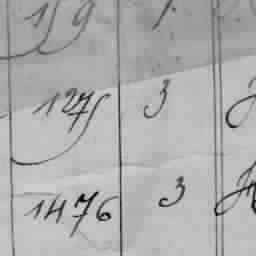 159 1
1275 3
1476 3